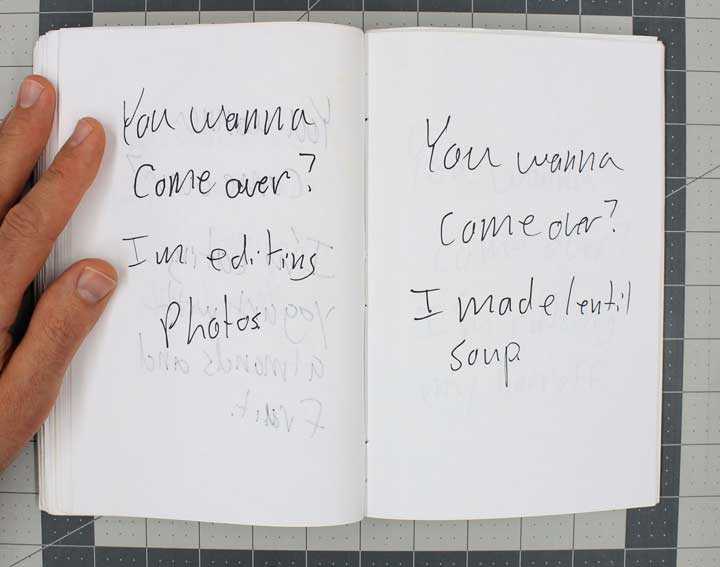 You wanna
Come over?
Im editing
Photos
You wanna
come over?
I made lentil
soup